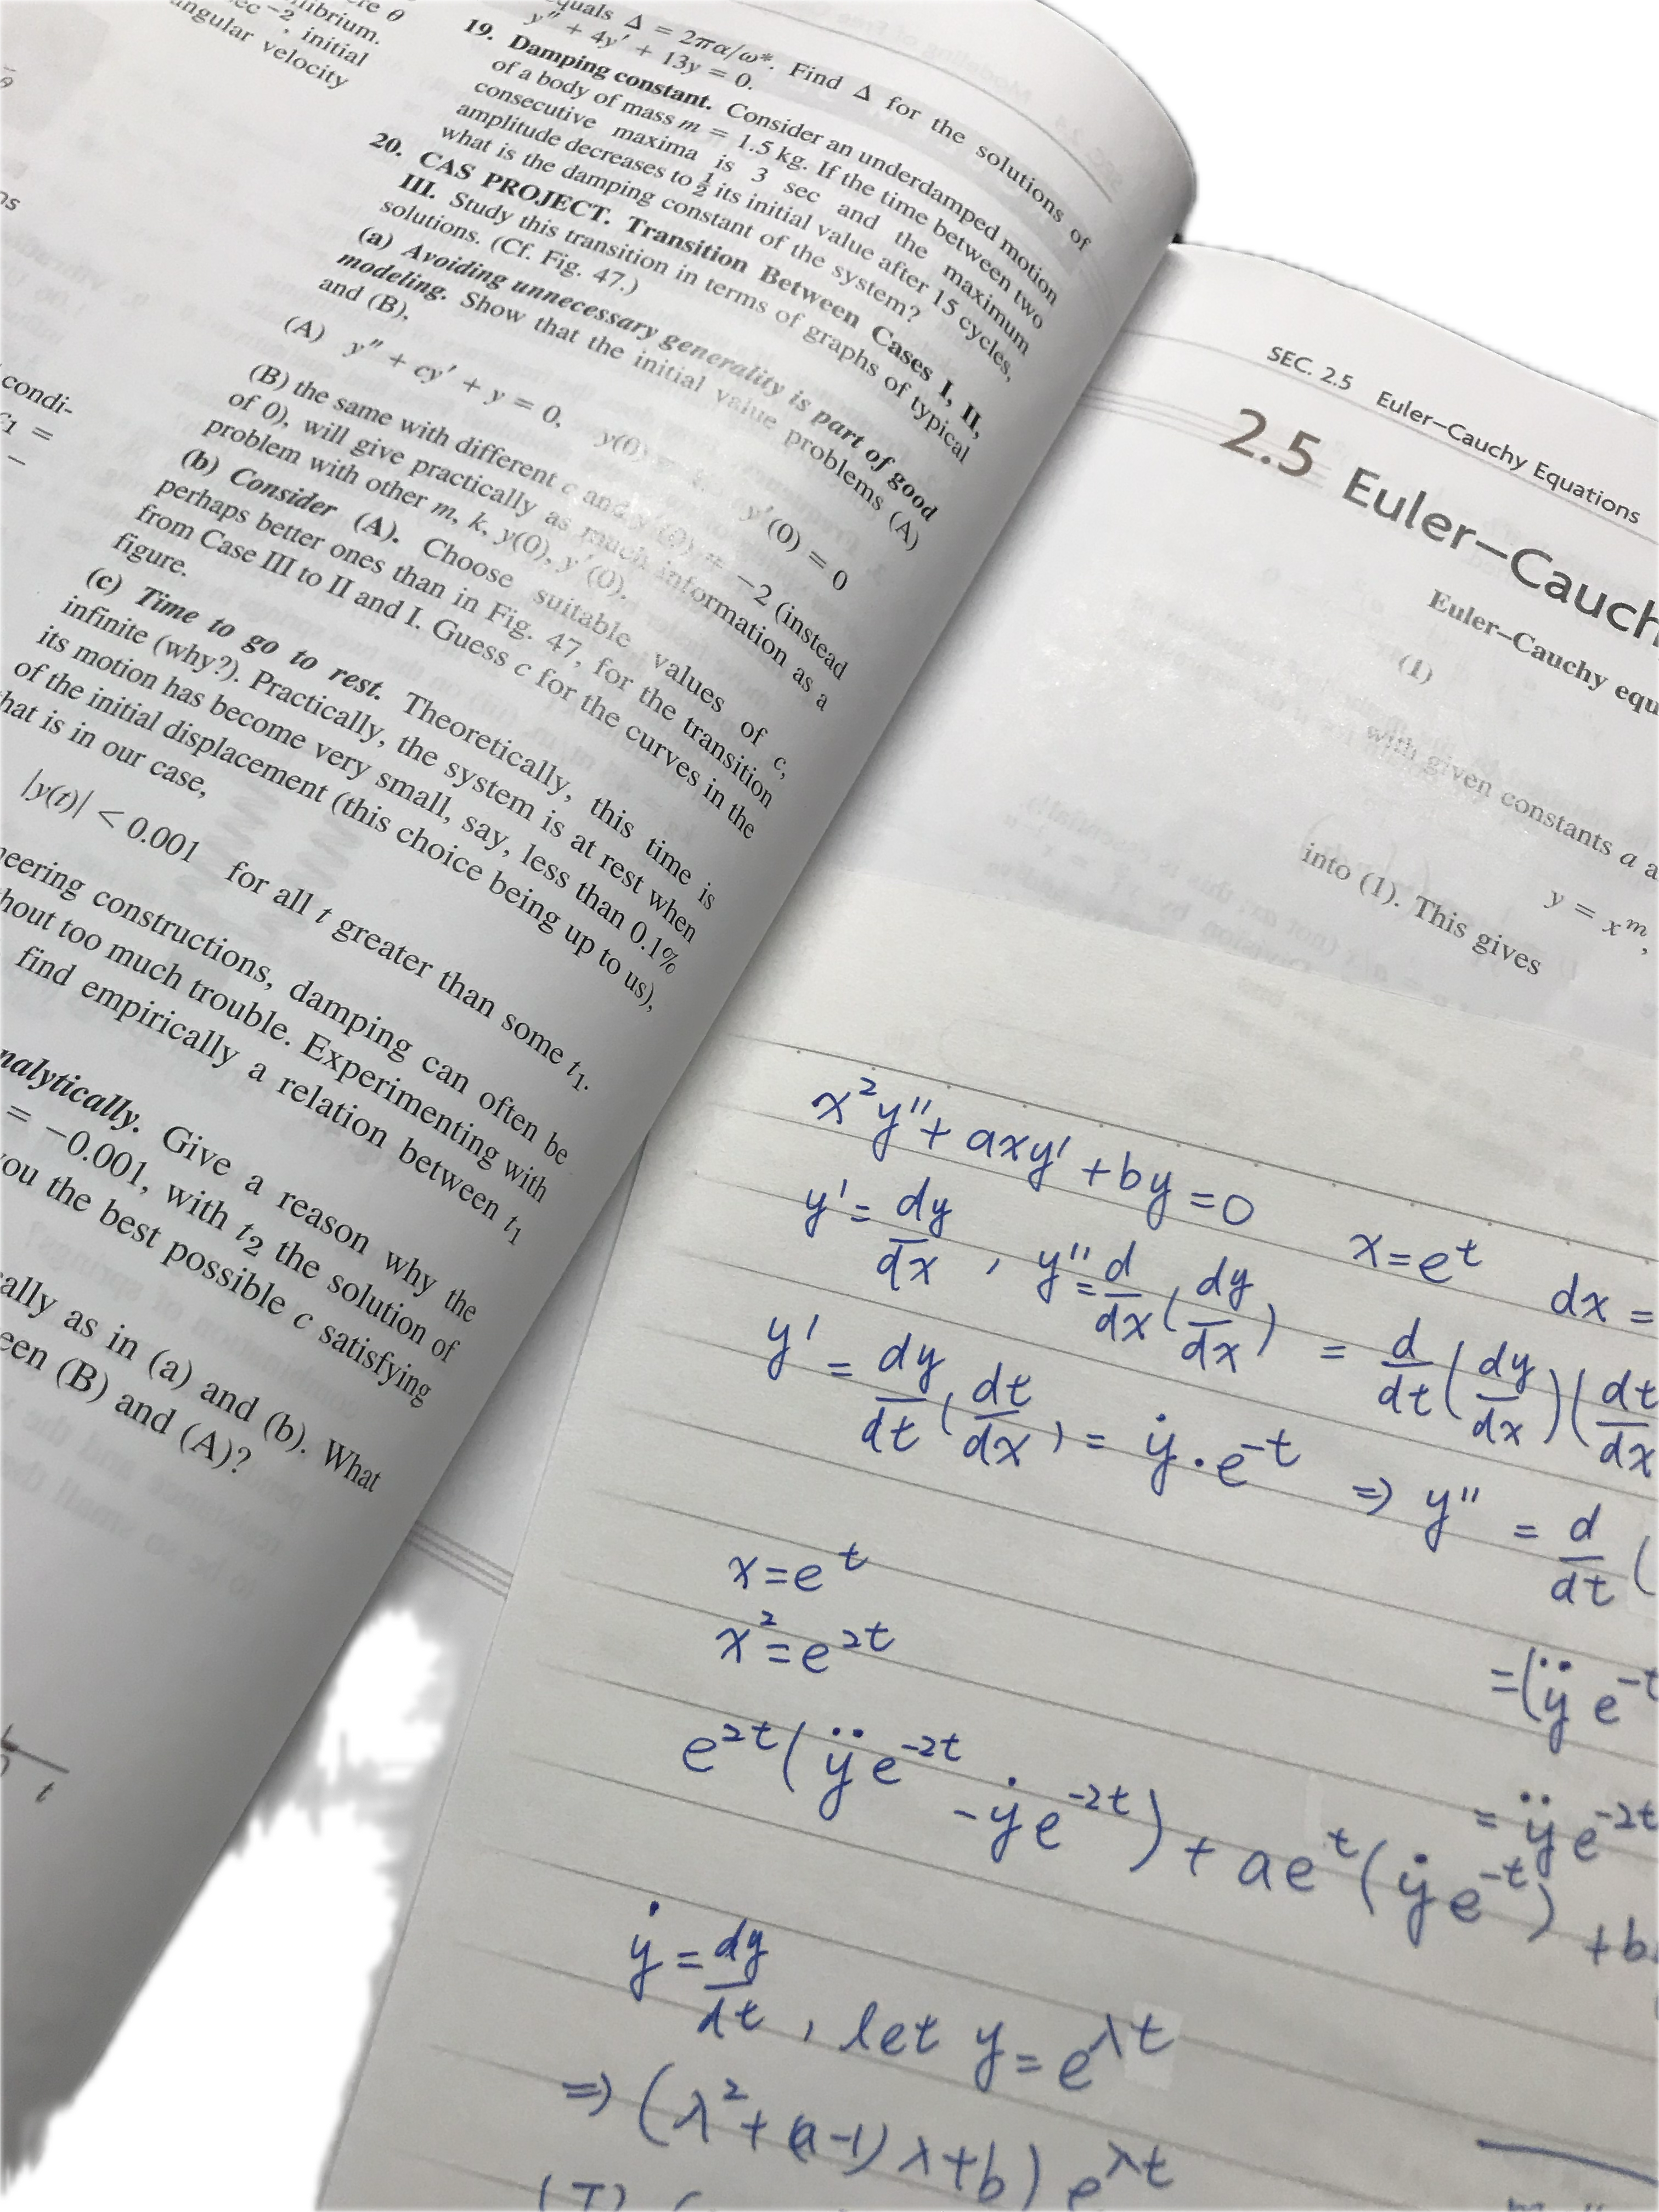 ere θ
librium.
sec⁻², initial
angular velocity
condi-
c₁ =
quals Δ = 2πα/ω*. Find Δ for the solutions of
y″ + 4y′ + 13y = 0.
19. Damping constant. Consider an underdamped motion
of a body of mass m = 1.5 kg. If the time between two
consecutive maxima is 3 sec and the maximum
amplitude decreases to ½ its initial value after 15 cycles,
what is the damping constant of the system?
20. CAS PROJECT. Transition Between Cases I, II,
III. Study this transition in terms of graphs of typical
solutions. (Cf. Fig. 47.)
(a) Avoiding unnecessary generality is part of good
modeling. Show that the initial value problems (A)
and (B),
(A) y″ + cy′ + y = 0, y(0) = y′(0) = 0
(B) the same with different c and y′(0) = −2 (instead
of 0), will give practically as much information as a
problem with other m, k, y(0), y′(0).
(b) Consider (A). Choose suitable values of c,
perhaps better ones than in Fig. 47, for the transition
from Case III to II and I. Guess c for the curves in the
figure.
(c) Time to go to rest. Theoretically, this time is
infinite (why?). Practically, the system is at rest when
its motion has become very small, say, less than 0.1%
of the initial displacement (this choice being up to us),
hat is in our case,
|y(t)| < 0.001 for all t greater than some t₁.
neering constructions, damping can often be
hout too much trouble. Experimenting with
find empirically a relation between t₁
nalytically. Give a reason why the
= −0.001, with t₂ the solution of
ou the best possible c satisfying
cally as in (a) and (b). What
een (B) and (A)?
t
SEC. 2.5 Euler–Cauchy Equations
2.5 Euler–Cauch
Euler–Cauchy equ
(1)
with given constants a a
y = xᵐ,
into (1). This gives
x²y″ + axy′ + by = 0 x = eᵗ dx =
y′ = dy/dx , y″ = d/dx (dy/dx) = d/dt (dy/dx)(dt/dx
y′ = dy/dt (dt/dx) = ẏ · e⁻ᵗ ⇒ y″ = d/dt (
x = eᵗ
x² = e²ᵗ
= (ÿ e⁻ᵗ
= ÿ e⁻²ᵗ
e²ᵗ(ÿe⁻²ᵗ − ẏe⁻²ᵗ) + aeᵗ(ẏe⁻ᵗ) + b
ẏ = dy/dt , let y = e^λt
⇒ (λ² + (a−1)λ + b) e^λt
(I) (